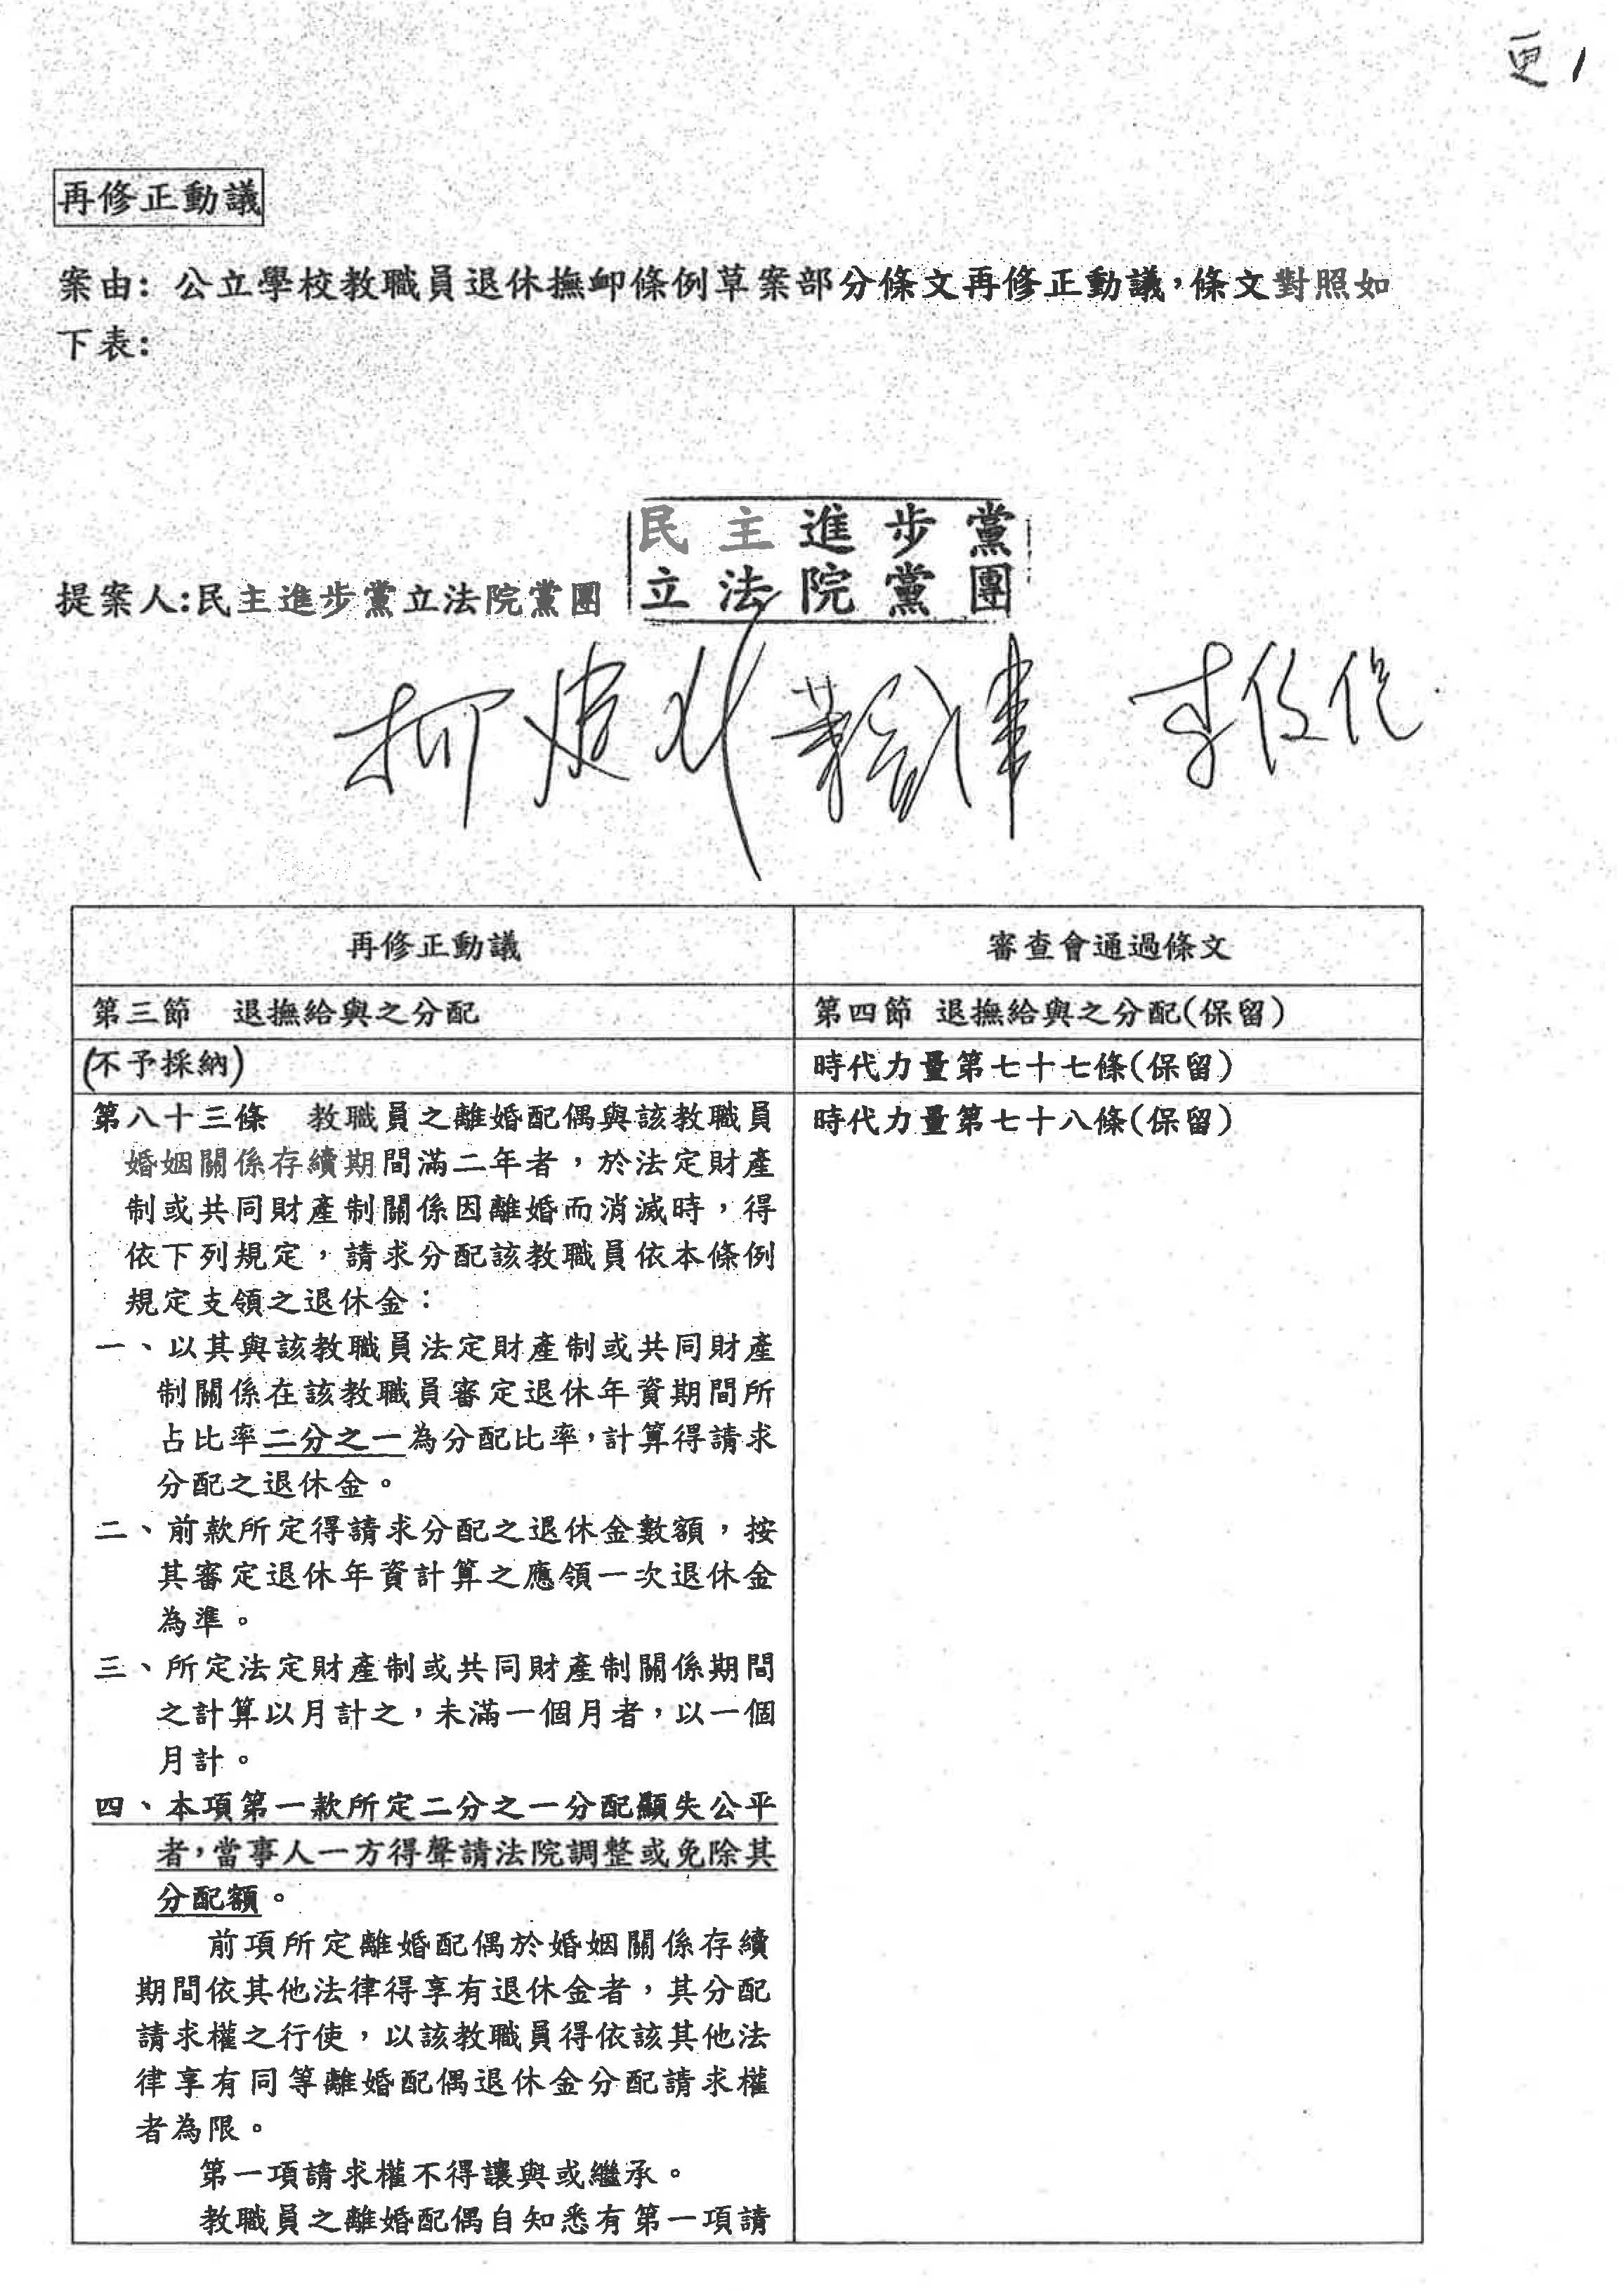 更1
再修正動議
案由：公立學校教職員退休撫卹條例草案部分條文再修正動議，條文對照如
下表：
民主進步黨
立法院黨團
提案人:民主進步黨立法院黨團
再修正動議
審查會通過條文
第三節　退撫給與之分配
第四節 退撫給與之分配(保留)
(不予採納)
時代力量第七十七條(保留)
第八十三條　教職員之離婚配偶與該教職員
婚姻關係存續期間滿二年者，於法定財產
制或共同財產制關係因離婚而消滅時，得
依下列規定，請求分配該教職員依本條例
規定支領之退休金：
一、以其與該教職員法定財產制或共同財產
制關係在該教職員審定退休年資期間所
占比率二分之一為分配比率，計算得請求
分配之退休金。
二、前款所定得請求分配之退休金數額，按
其審定退休年資計算之應領一次退休金
為準。
三、所定法定財產制或共同財產制關係期間
之計算以月計之，未滿一個月者，以一個
月計。
四、本項第一款所定二分之一分配顯失公平
者，當事人一方得聲請法院調整或免除其
分配額。
前項所定離婚配偶於婚姻關係存續
期間依其他法律得享有退休金者，其分配
請求權之行使，以該教職員得依該其他法
律享有同等離婚配偶退休金分配請求權
者為限。
第一項請求權不得讓與或繼承。
教職員之離婚配偶自知悉有第一項請
時代力量第七十八條(保留)